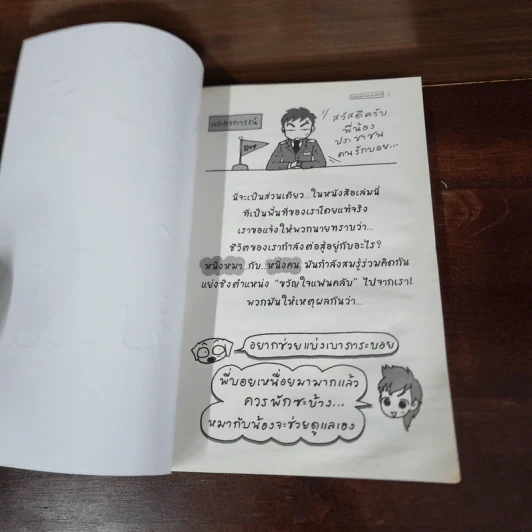 แถลงการณ์
สวัสดีครับ
พี่น้อง
ประชาชน
คนรักบอย...
นี่จะเป็นส่วนเดียว...ในหนังสือเล่มนี้
ที่เป็นพื้นที่ของเราโดยแท้จริง
เราขอแจ้งให้พวกนายทราบว่า...
ชีวิตของเรากำลังต่อสู้อยู่กับอะไร?
หนึ่งหมา..กับ..หนึ่งคน มันกำลังสมรู้ร่วมคิดกัน
แย่งชิงตำแหน่ง "ขวัญใจแฟนคลับ" ไปจากเรา!
พวกมันให้เหตุผลกันว่า...
อยากช่วยแบ่งเบาภาระบอย
พี่บอยเหนื่อยมามากแล้ว
ควรพักซะบ้าง...
หมากับน้องจะช่วยดูแลเอง